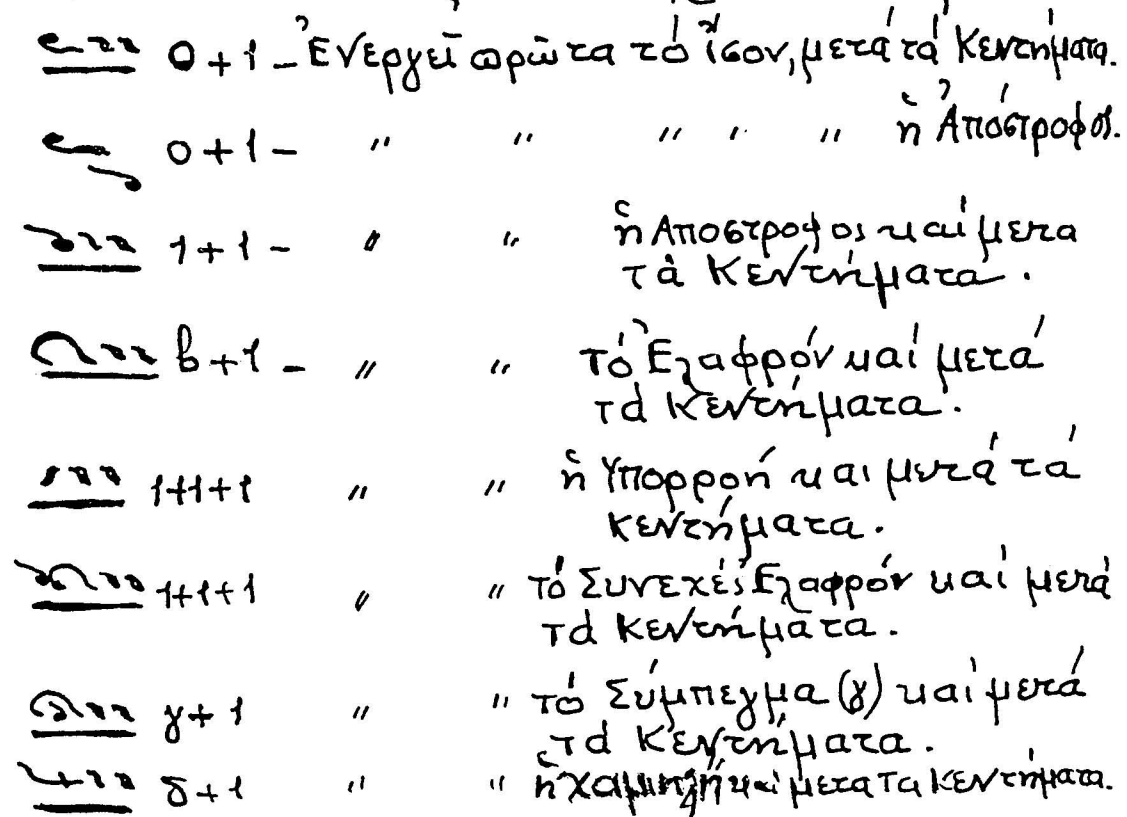 0+1 – Ἐνεργεῖ πρῶτα τό ἴσον, μετά τά Κεντήματα.
0+1 – " " " " " ἡ Ἀπόστροφος.
1+1 – " " ἡ Αποστροφος καί μετα
τὰ Κεντήματα.
β+1 – " " τό Ἐλαφρόν καί μετά
τά Κεντήματα.
1+1+1 " " ἡ Υπορροή και μετά τά
κεντήματα.
1+1+1 " " τό Συνεχές Ελαφρόν καί μετά
τά κεντήματα.
γ+1 " " τό Σύμπεγμα (γ) καί μετά
τά Κεντήματα.
δ+1 " " ἡ χαμηλή καί μετα τα κεντήματα.